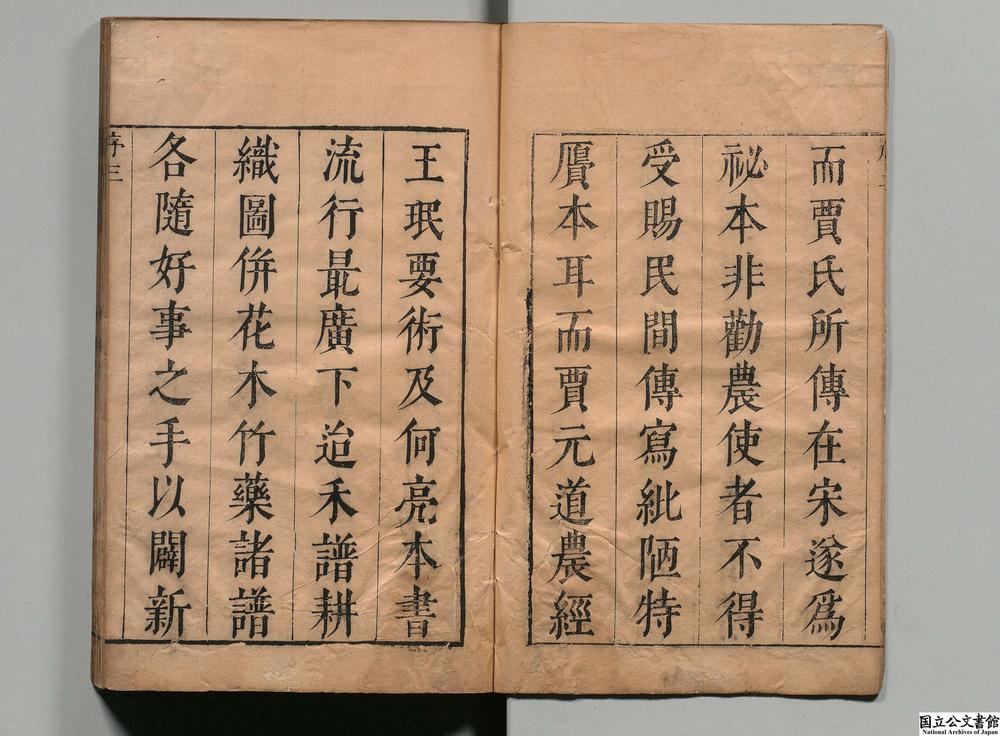 而賈氏所傳在宋遂爲
祕本非勸農使者不得
受賜民間傳寫紕陋特
贗本耳而賈元道農經
王珉要術及何亮本書
流行最廣下迨禾譜耕
織圖併花木竹藥諸譜
各隨好事之手以闢新
序三
国立公文書館
National Archives of Japan